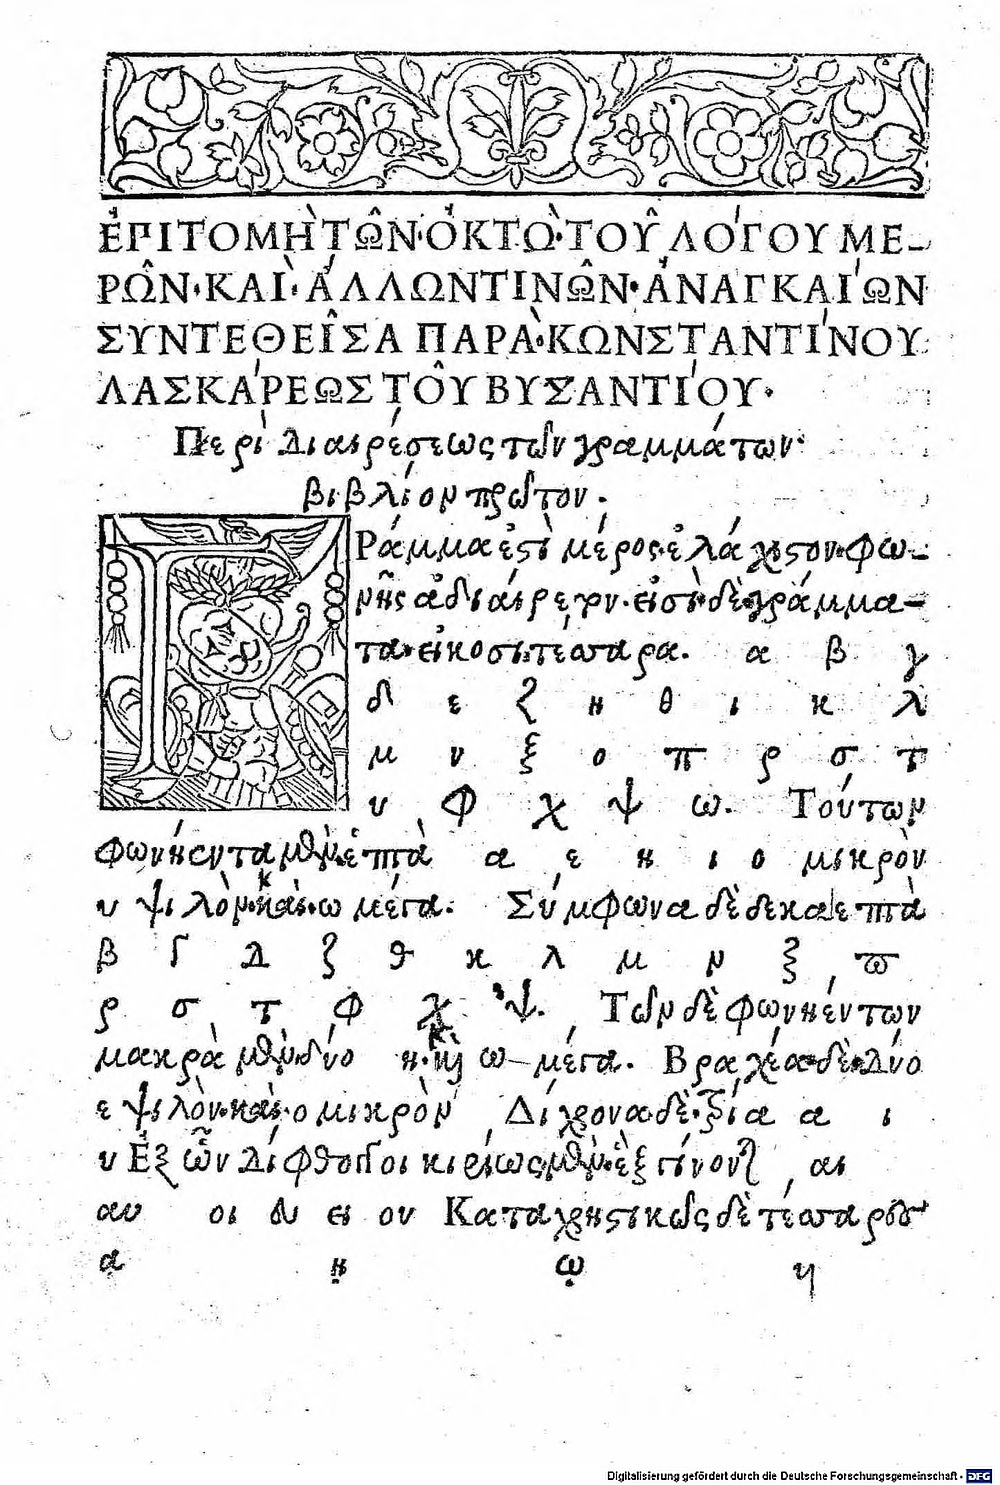 ἘΠΙΤΟΜῊ ΤΩ͂Ν·ὈΚΤῺ·ΤΟΥ͂ ΛΌΓΟΥ ΜΕ-
ΡΩ͂Ν·ΚΑῚ·ἌΛΛΩΝ ΤΙΝΩ͂Ν·ἈΝΑΓΚΑΊΩΝ
ΣΥΝΤΕΘΕΙ͂ΣΑ ΠΑΡᾺ·ΚΩΝΣΤΑΝΤΊΝΟΥ
ΛΑΣΚΆΡΕΩΣ ΤΟΥ͂ ΒΥΖΑΝΤΊΟΥ·
Περὶ Διαιρέσεως τῶν γραμμάτων·
βιβλίον πρῶτον.
Ράμμα ἐστὶ μέρος·ἐλάχιστον·φω-
νῆς ἀδιαίρετον·εἰσὶ·δὲ·γράμμα-
τα·εἰκοσιτέσσαρα. α β γ
δ ε ζ η θ ι κ λ
μ ν ξ ο π ρ σ τ
υ φ χ ψ ω. Τούτων
φωνήεντα μὲν·ἑπτὰ α ε η ι ο μικρὸν
υ ψιλὸν·καὶ·ω μέγα. Σύμφωνα δὲ δεκαεπτὰ
β γ δ ζ θ κ λ μ ν ξ π
ρ σ τ φ χ ψ. Τῶν δὲ φωνηέντων
μακρὰ μὲν·δύο η·καὶ ω-μέγα. Βραχέα·δὲ·δύο
ε ψιλὸν·καὶ·ο μικρὸν Δίχρονα·δὲ·τρία α ι
υ Ἐξ ὧν Δίφθογγοι κυρίως·μὲν·ἓξ γίνονται αι
αυ οι ευ ει ου Καταχρηστικῶς δὲ τέσσαρες
ᾳ ῃ ῳ